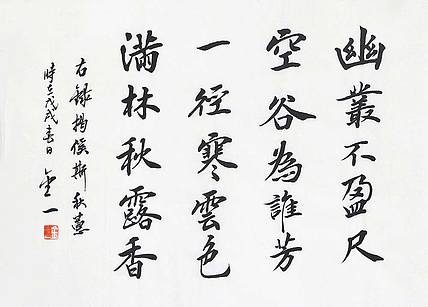 幽叢不盈尺
空谷為誰芳
一徑寒雲色
滿林秋露香
右録揭傒斯秋蕙
時在戊戌春日 金一